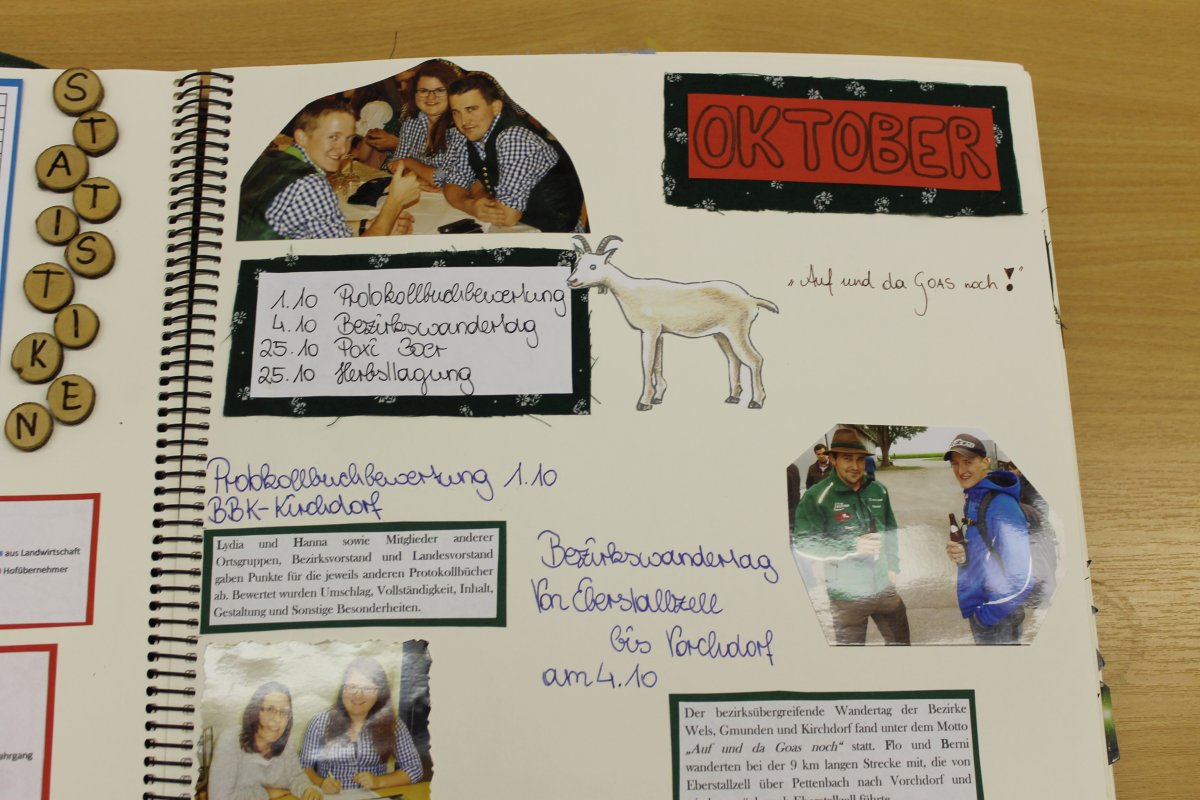 STATISTIKEN
aus Landwirtschaft
Hofübernehmer
ahrgang
OKTOBER
1.10 Protokollbuchbewertung
4.10 Bezirkswandertag
25.10 Poxi 30er
25.10 Herbsttagung
„Auf und da Goas noch!“
Protokollbuchbewertung 1.10
BBK-Kirchdorf
Lydia und Hanna sowie Mitglieder anderer
Ortsgruppen, Bezirksvorstand und Landesvorstand
gaben Punkte für die jeweils anderen Protokollbücher
ab. Bewertet wurden Umschlag, Vollständigkeit, Inhalt,
Gestaltung und Sonstige Besonderheiten.
Bezirkswandertag
Von Eberstallzell
bis Vorchdorf
am 4.10
Der bezirksübergreifende Wandertag der Bezirke
Wels, Gmunden und Kirchdorf fand unter dem Motto
„Auf und da Goas noch“ statt. Flo und Berni
wanderten bei der 9 km langen Strecke mit, die von
Eberstallzell über Pettenbach nach Vorchdorf und
Eberstallzell führte.